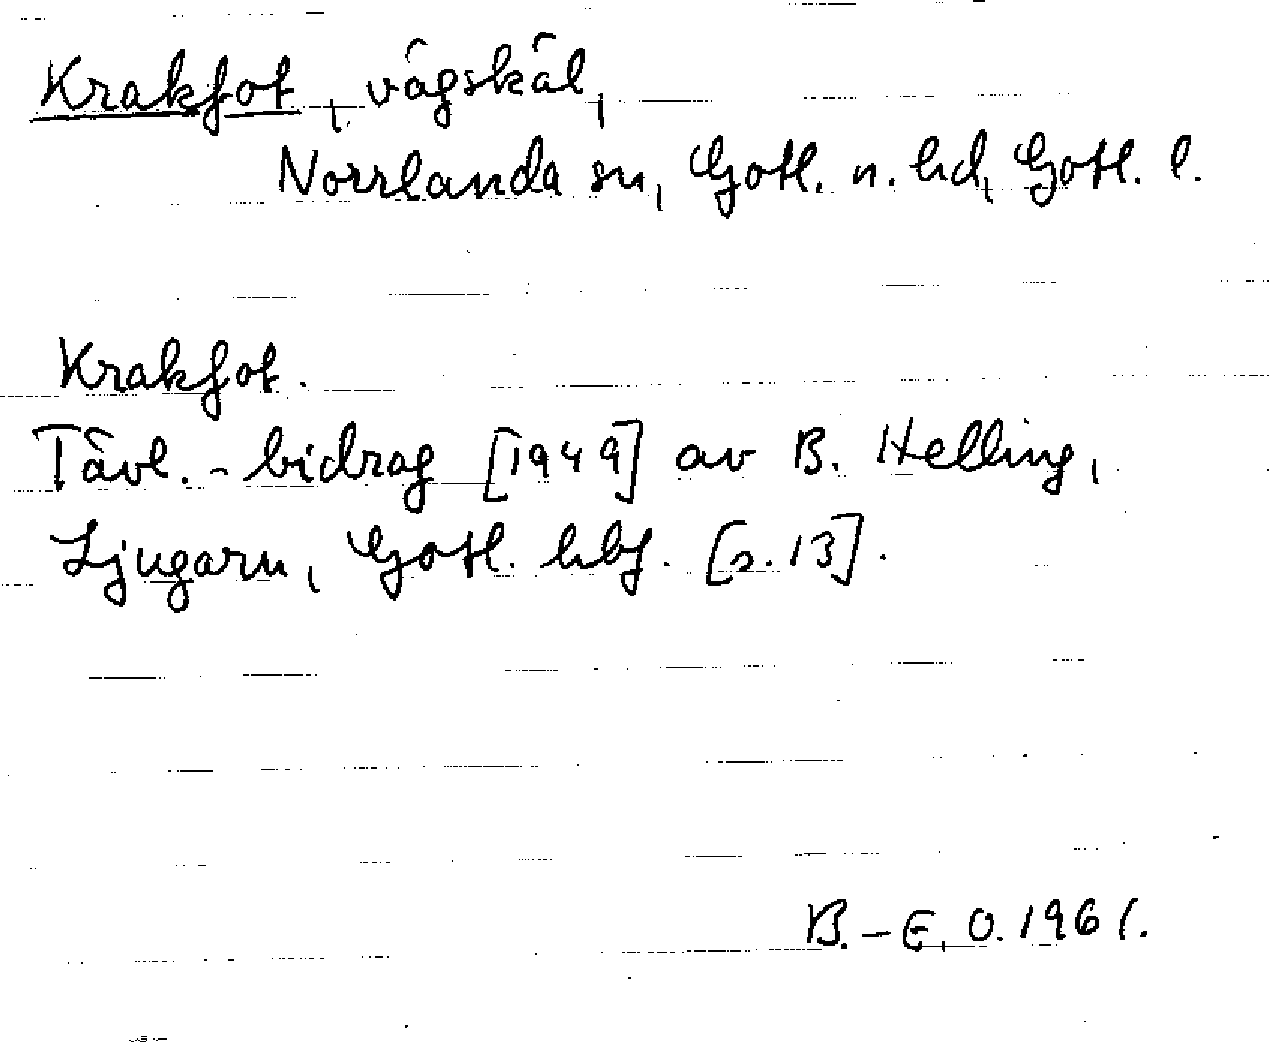 Krakfot, vägskäl,
Norrlanda sn, Gotl. n. hd, Gotl. l.
Krakfot.
Tävl.-bidrag [1949] av B. Helling,
Ljugarn, Gotl. hbf. [s. 13].
B.-E. O. 1961.